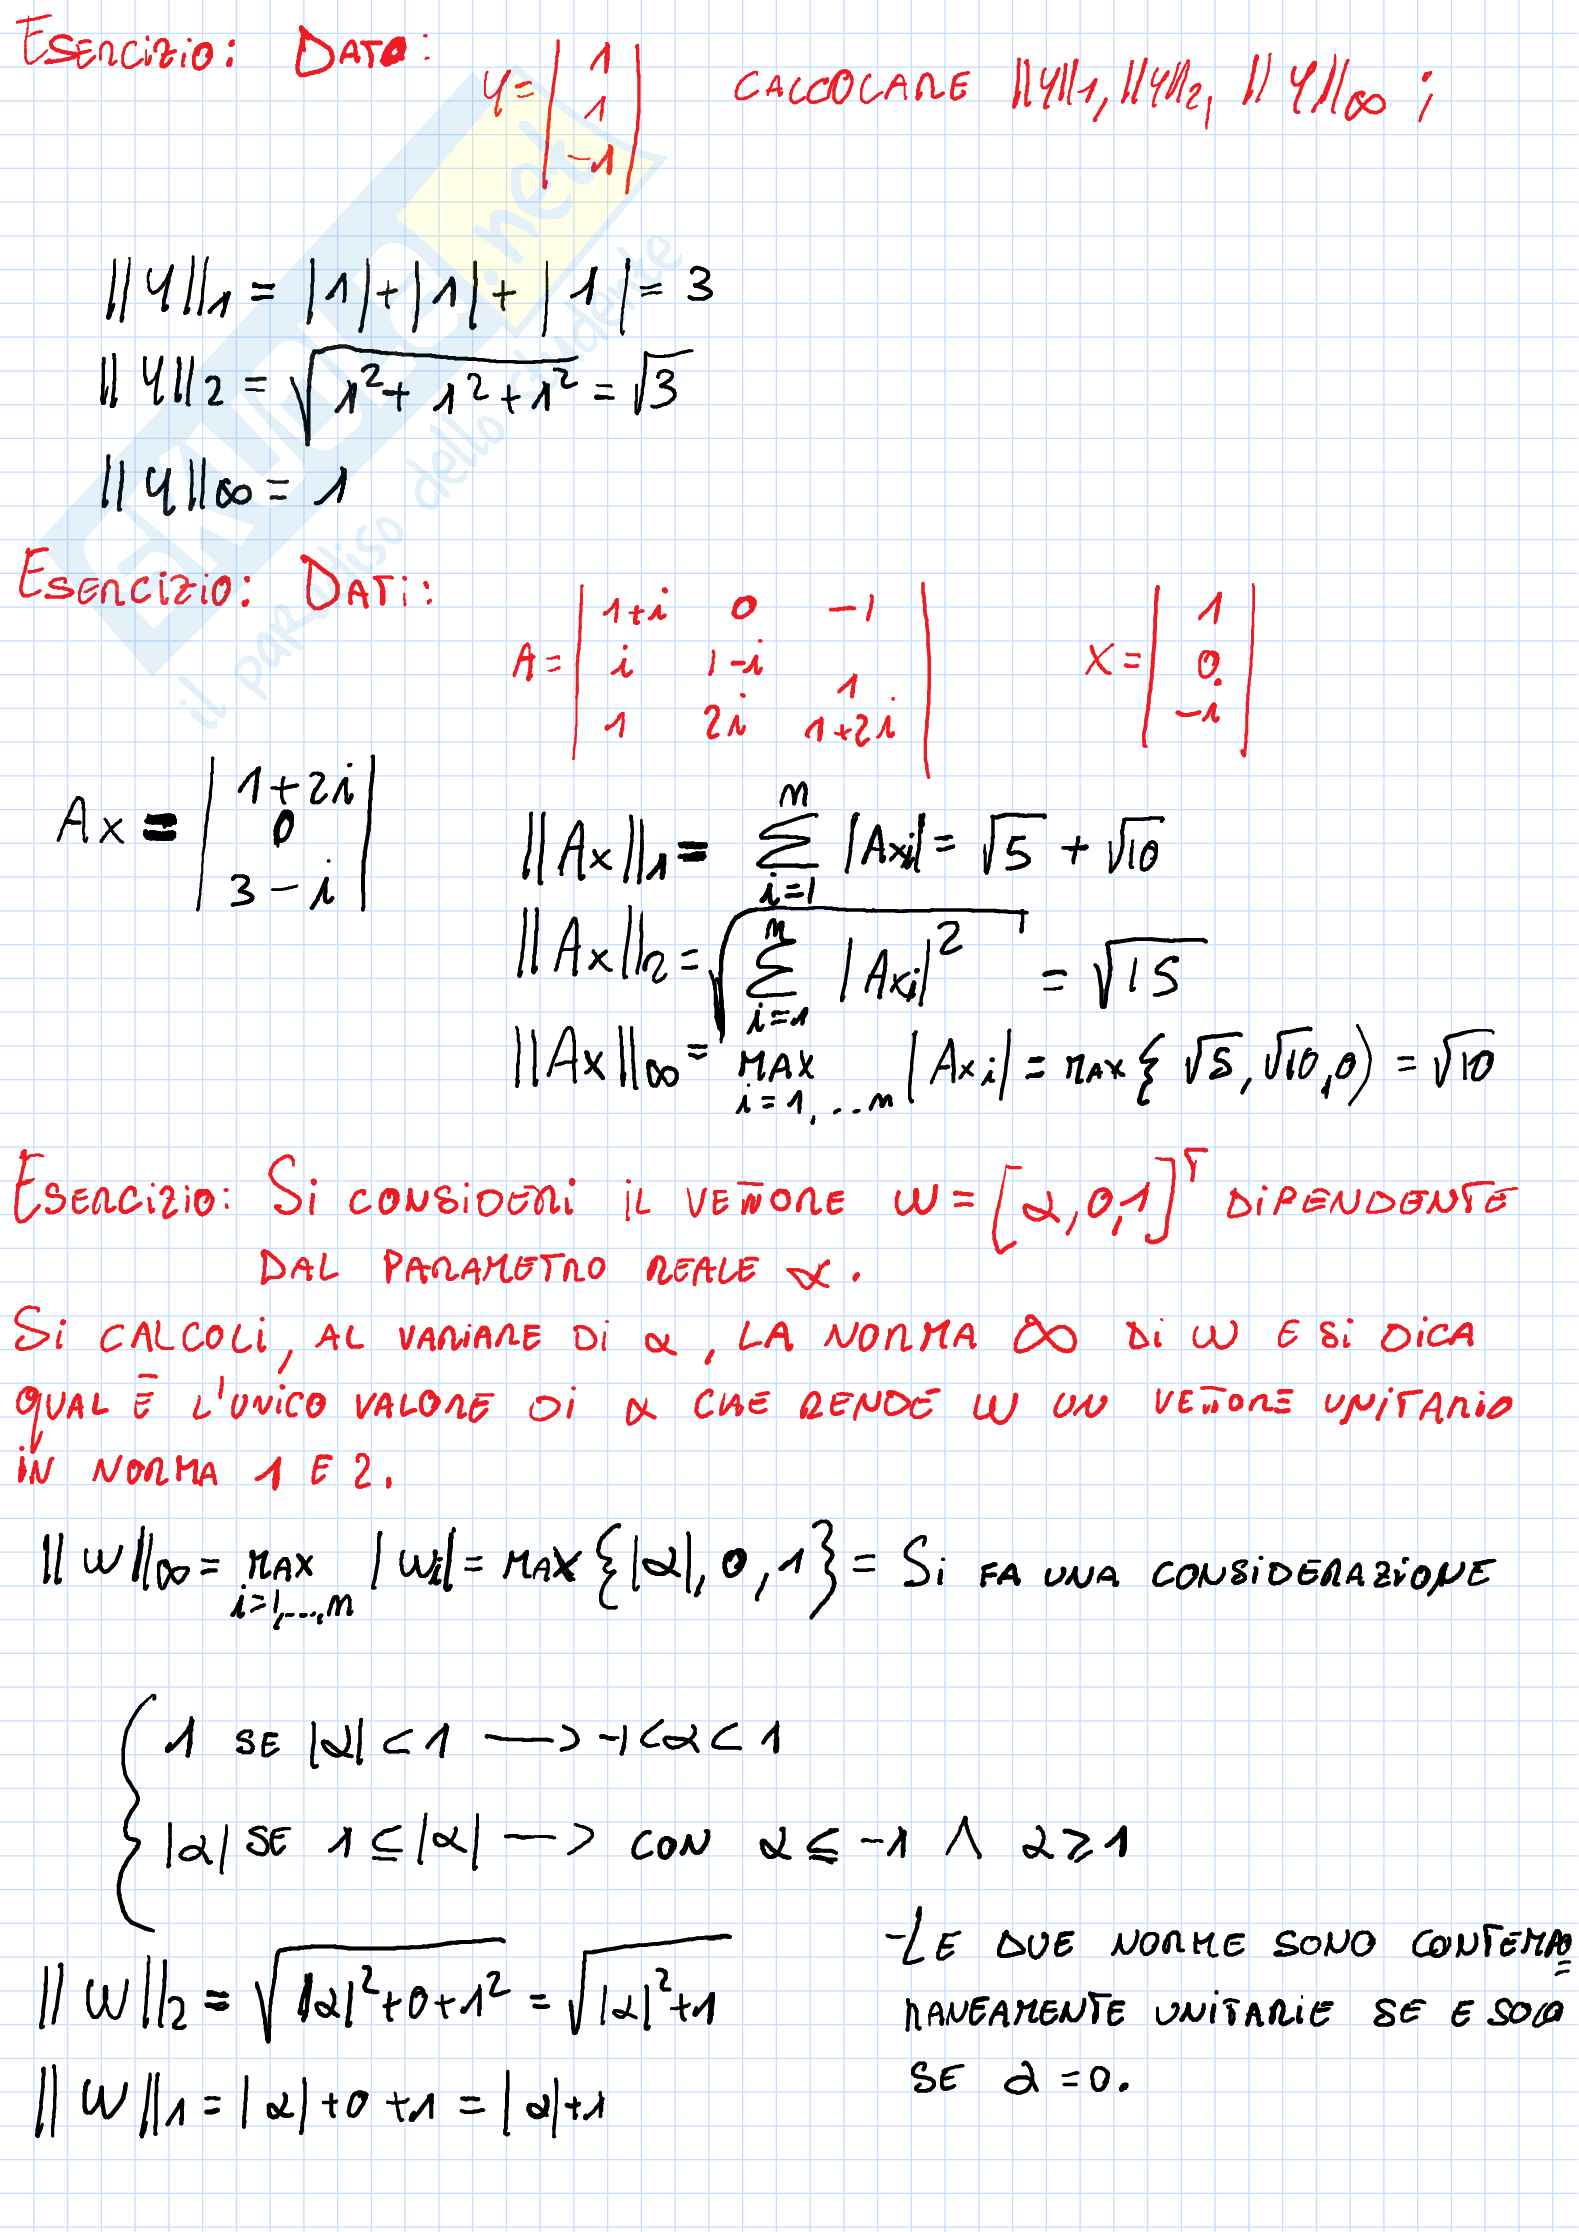 ESERCIZIO: DATO:
Y = | 1 | CALCOLARE ||Y||1, ||Y||2, ||Y||∞ ;
| 1 |
| -1 |
||Y||1 = |1|+|1|+|1| = 3
||Y||2 = √(1²+1²+1²) = √3
||Y||∞ = 1
ESERCIZIO: DATI:
| 1+i 0 -1 | | 1 |
A = | i 1-i 1 | X = | 0 |
| 1 2i 1+2i | | -i |
| 1+2i |
Ax = | 0 |
| 3-i |
||Ax||1 = Σ i=1 n |Axi| = √5 + √10
||Ax||2 = √(Σ i=1 n |Axi|²) = √15
||Ax||∞ = MAX i=1,...n |Axi| = MAX{√5, √10, 0) = √10
ESERCIZIO: SI CONSIDERI IL VETTORE W = [α, 0, 1]ᵀ DIPENDENTE
DAL PARAMETRO REALE α.
SI CALCOLI, AL VARIARE DI α, LA NORMA ∞ DI W E SI DICA
QUAL È L'UNICO VALORE DI α CHE RENDE W UN VETTORE UNITARIO
IN NORMA 1 E 2.
||W||∞ = MAX i=1,...,n |Wi| = MAX{|α|, 0, 1} = SI FA UNA CONSIDERAZIONE
{ 1 SE |α| < 1 → -1<α<1
|α| SE 1 ≤ |α| → CON α ≤ -1 ∧ α ≥ 1
||W||2 = √(|α|²+0+1²) = √(|α|²+1)
||W||1 = |α|+0+1 = |α|+1
-LE DUE NORME SONO CONTEMPO=
RANEAMENTE UNITARIE SE E SOLO
SE α = 0.
skuola.net
il paradiso dello studente